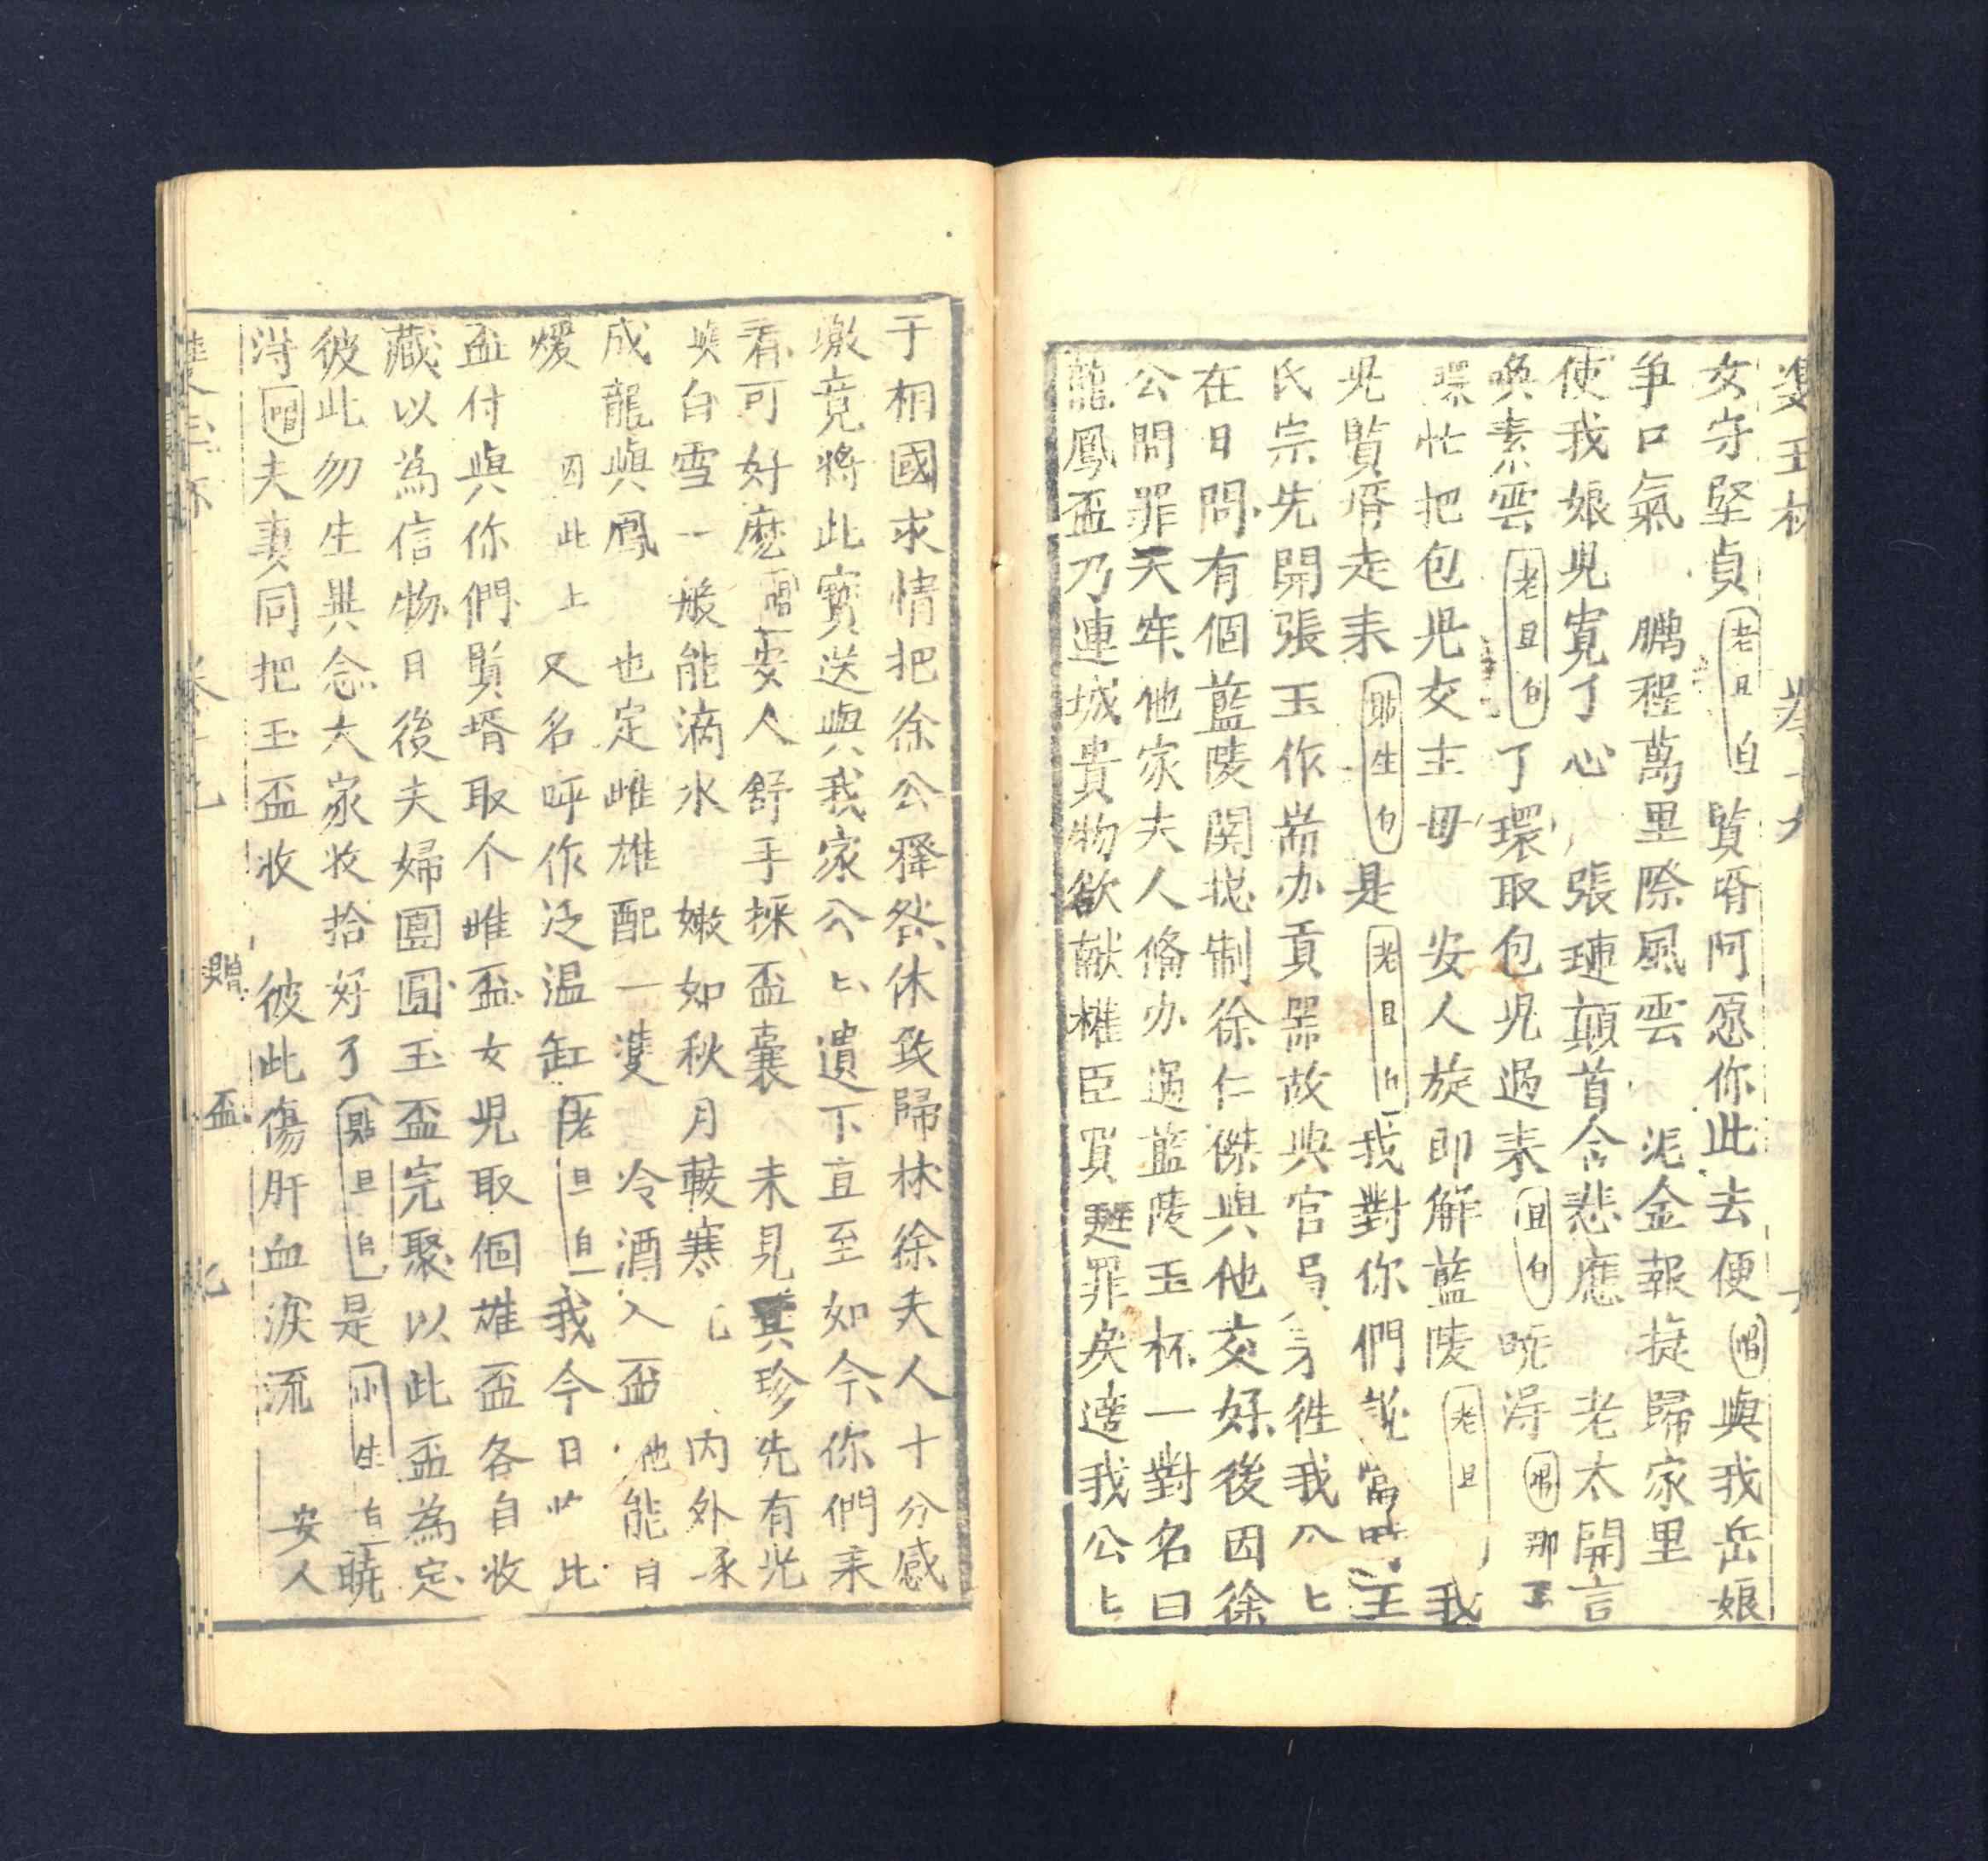 雙玉杯
女守堅貞 老旦白 賢婿阿愿你此去便 唱 與我岳娘
爭口氣 鵬程萬里際風雲 泥金報捷歸家里
使我娘兒寛了心 張璉顛首含悲應 老太開言
喚素雲 老旦白 丫環取包兒過來 旦白 曉淂 唱 那丫
環忙把包兒交主母 安人旋即觧藍陵 老旦 我
兒賢婿走耒 貼生白 是 老旦白 我對你們說當 王
氏宗先開張玉作耑办貢噐故典官局 徃我公匕
在日問有個藍陵関揔制徐仁傑與他交好後因徐
公問罪天牢他家夫人俻办過藍陵玉杯一對名曰
龍鳳盃乃連城貴物欲献權臣買 罪矣逹我公匕
于相國求情把徐公釋然休致歸林徐夫人十分感
激竟將此寳送與我家公匕遺下直至如今你們耒
看可好麽 唱 安人舒手採盃囊 未見 珍先有光
白雪一般能滴水 嫩如秋月較寒 内外承
成龍與鳳 也定雌雄配一雙 冷酒入盃他能自
煖 因此上又名呼作泛温缸 老旦白 我今日 比
盃付與你們賢壻取个雌盃女兒取個雄盃各自收
藏以為信物日後夫婦團圓玉盃完聚以此盃為定
彼此勿生異念大家收拾好了 貼旦白 是 小生白 曉
淂 唱 夫妻同把玉盃收 彼此傷肝血淚流 安人
贈 盃